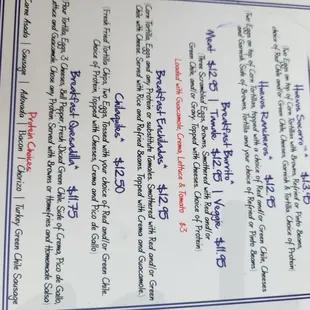 Huevos Socorro $13.95
Two Eggs on top of Corn Tortillas with Browns, Refried or Pinto Beans,
choice of Red and/or Green Chile, Cheeses, Garnish & Tortilla. Choice of Protein
Huevos Rancheros $12.95
Two Eggs on top of Corn Tortillas, topped with a choice of Red and/or Green Chile, Cheeses
and Garnish. Side of Browns, Tortilla and your choice of Refried or Pinto Beans.
Breakfast Burrito
Meat $12.95 | Tamale $12.95 | Veggie $11.95
Three Scrambled Eggs, Browns, Smothered with Red and/or
Green Chile, and/or Gravy, Topped with Cheeses. Choice of Protein
Loaded with Guacamole, Crema, Lettuce & Tomato $3
Breakfast Enchiladas $12.95
Corn Tortilla, Eggs and any Protein or substitute Tomatoes, Smothered with Red and/or Green
Chile with Cheese, Served with Rice and Refried Beans. Topped with Crema and Guacamole.
Chilaquiles $12.50
Fried Tortilla Chips, Two Eggs, Tossed with your choice of Red and/or Green Chile,
Choice of Protein, topped with Cheeses, Crema and Pico de Gallo
Breakfast Quesadilla $11.75
Flour Tortilla, Eggs, 3 Cheeses, Bell Pepper, Fried Diced Green Chile, Side of Crema, Pico de Gallo,
Lettuce and Guacamole. Choice any Protein. Served with Browns or Homefries and Homemade Salsa
Protein Choices:
Carne Asada | Sausage | Adovada | Bacon | Chorizo | Turkey Green Chile Sausage